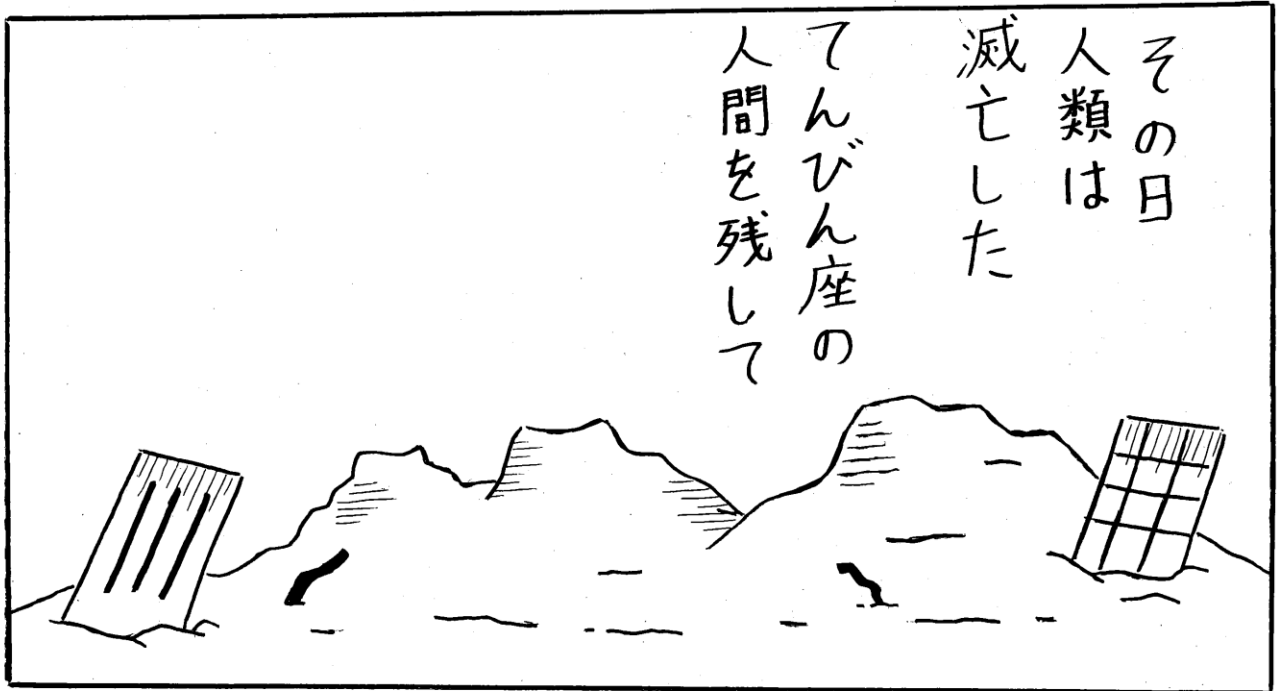 その日
人類は
滅亡した
てんびん座の
人間を残して